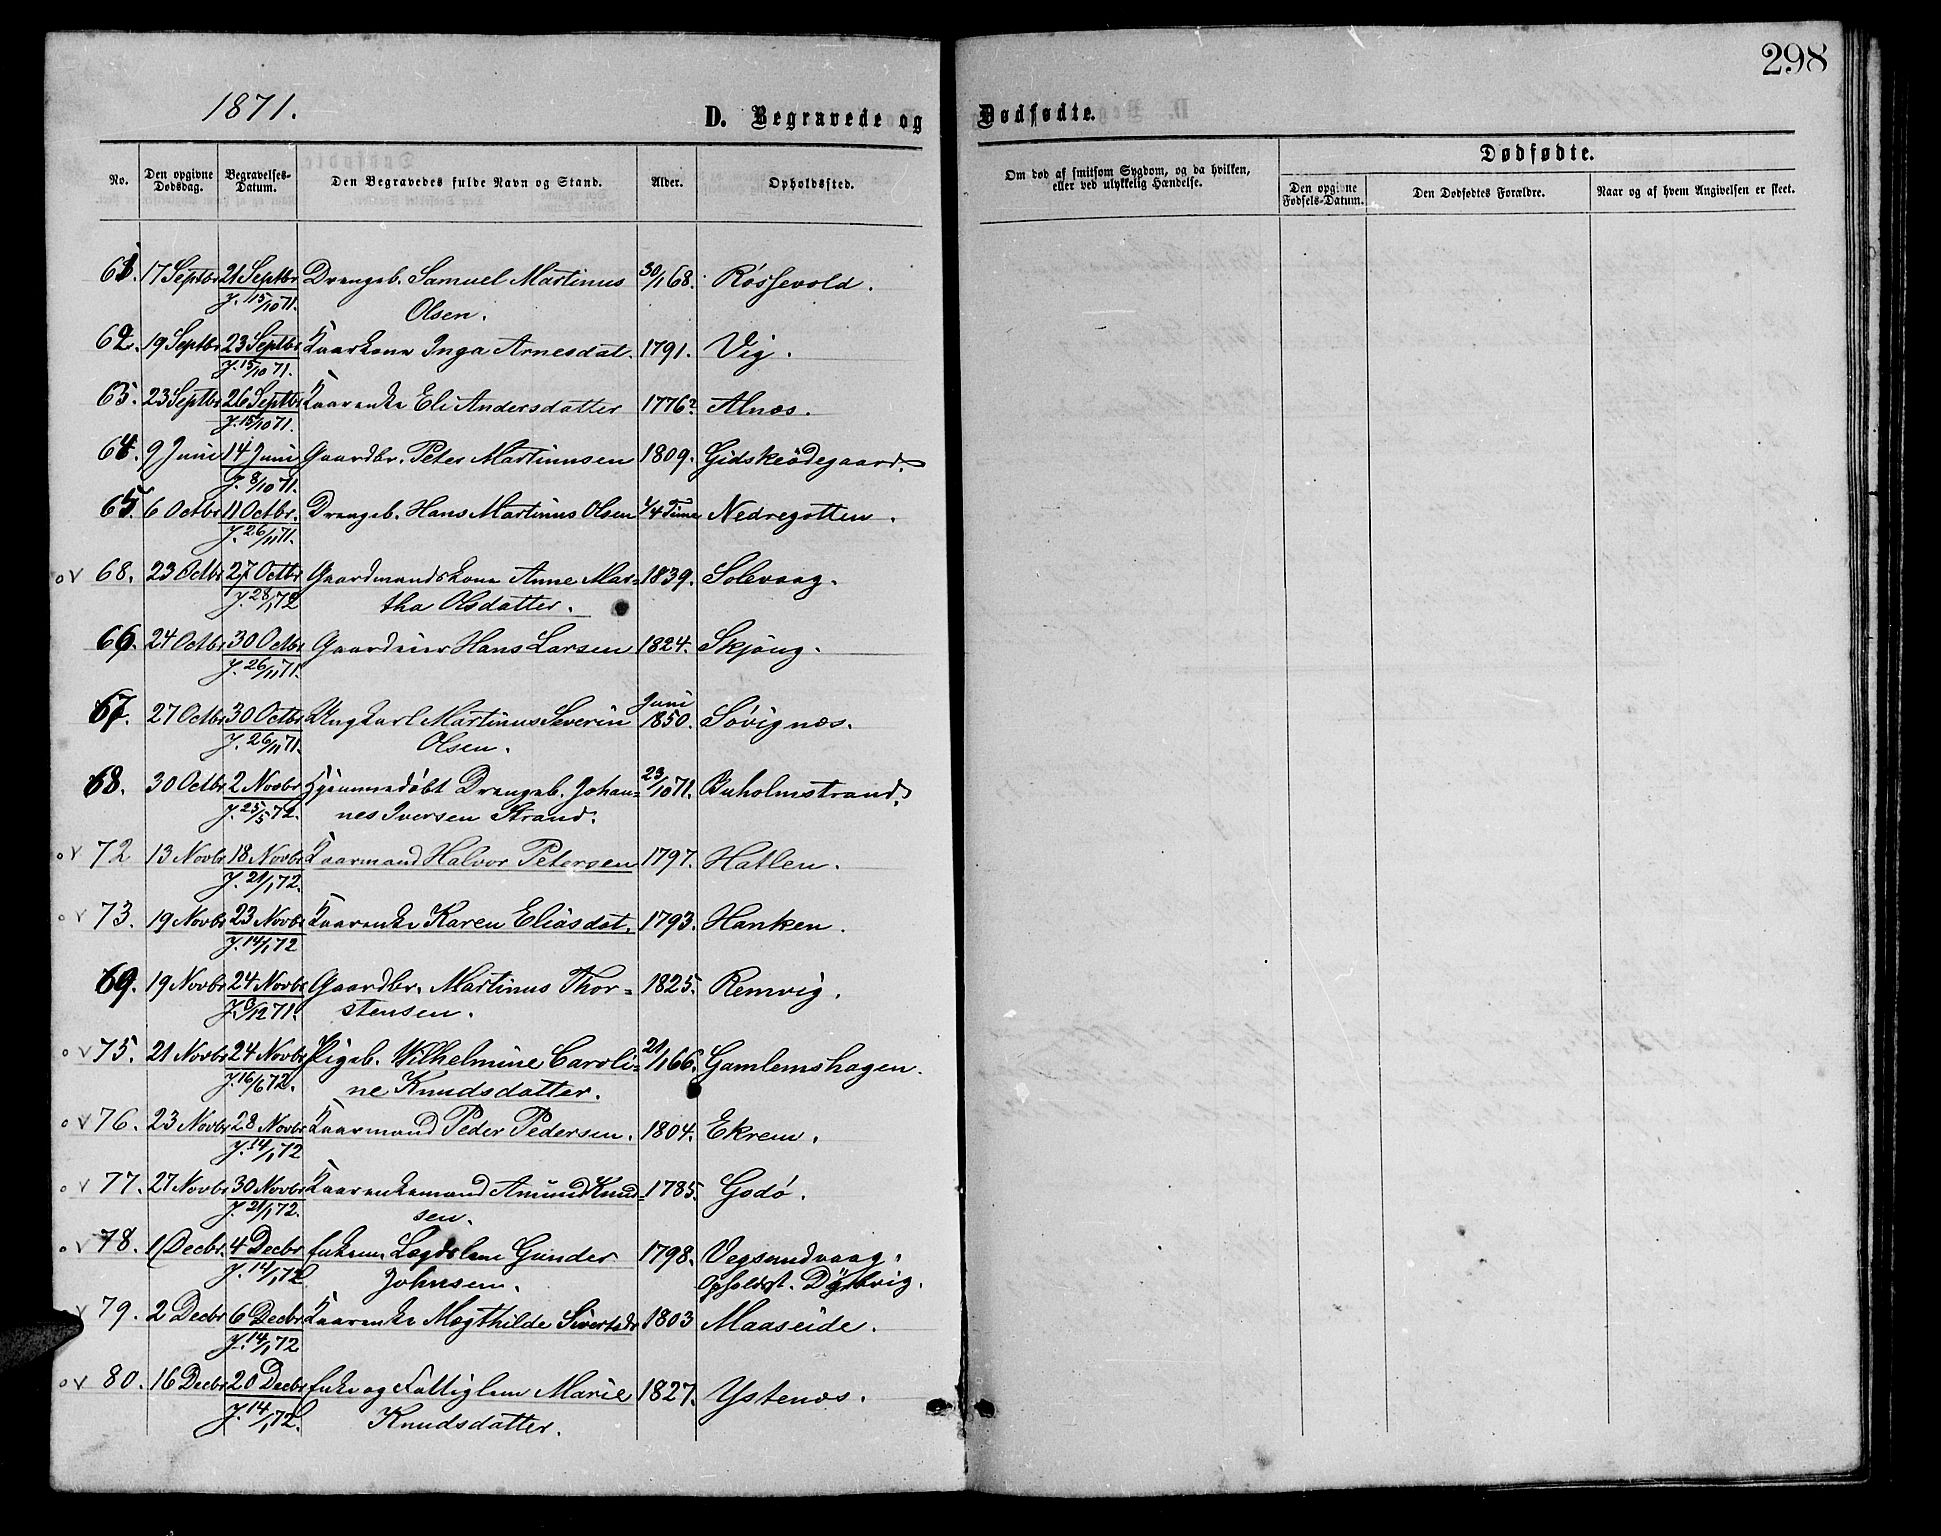 298
1871.
D. Begravede og Dødfødte.
No. Den opgivne Dødsdag. Begravelses-Datum. Den Begravedes fulde Navn og Stand. Alder. Opholdssted.
Om død af smitsom Sygdom, og da hvilken, eller ved ulykkelig Hændelse.
Dødfødte.
Den opgivne Fødsels-Datum. Den Dødfødtes Forældre. Naar og af hvem Angivelsen er skeet.
61. 17 Septbr 21 Septbr Drengeb. Samuel Martinus 30/1 68. Røssevold.
J. 15/10 71. Olsen.
62. 19 Septbr 23 Septbr Kaarkone Inga Arnesdat. 1791. Vig.
J. 15/10 71.
63. 23 Septbr 26 Septbr Kaarenke Eli Andersdatter 1776? Alnæs.
J. 15/10 71.
64. 9 Juni 14 Juni Gaardbr. Peter Martinusen 1809. Gidskeødegaard.
J. 8/10 71.
65. 6 Octbr 11 Octbr. Drengeb. Hans Martinus Olsen 1/4 Time Nedregotten.
J. 26/11 71.
o v 68. 23 Octbr 27 Octbr Gaardmandskone Anne Mar= 1839. Solevaag.
J. 28/1 72 tha Olsdatter.
66. 24 Octbr 30 Octbr Gaardeier Hans Larsen 1824. Skjong.
J. 26/11 71.
67. 27 Octbr 30 Octbr Ungkarl Martinus Severin Juni 1850. Søvignæs.
J. 26/11 71. Olsen.
68. 30 Octbr 2 Novbr Hjemmedøbt Drengeb. Johan= 23/10 71. Buholmstrand.
J. 25/5 72. nes Iversen Strand.
o v 72 13 Novbr 18 Novbr Kaarmand Halvor Petersen 1797. Hatlen.
J. 21/1 72.
o v 73. 19 Novbr 23 Novbr Kaarenke Karen Eliasdat. 1793. Hanken.
J. 14/1 72
69. 19 Novbr 24 Novbr Gaardbr. Martinus Thor= 1825. Remvig.
J. 3/12 71. stensen.
o v 75. 21 Novbr 24 Novbr Pigeb. Vilhelmine Caroli= 21/1 66. Gamlemshagen.
J. 16/6 72. ne Knudsdatter.
o v 76. 23 Novbr 28 Novbr Kaarmand Peder Pedersen. 1804. Ekrem.
J. 14/1 72
o v 77. 27 Novbr 30 Novbr Kaarenkemand Amund Knud= 1785. Godø.
J. 21/1 72. sen.
o v 78. 1 Decbr. 4 Decbr Enkem. Lægdslem Gunder 1798. Vegsundvaag.
J. 14/1 72 Johnsen. Opholdst. Dybvig.
v 79. 2 Decbr 6 Decbr Kaarenke Magthilde Sivertsdr 1803 Maaseide.
J. 14/1 72
o v 80. 16 Decbr 20 Decbr Enke og Fattiglem Marie 1827. Ystenæs.
J. 14/1 72. Knudsdatter.